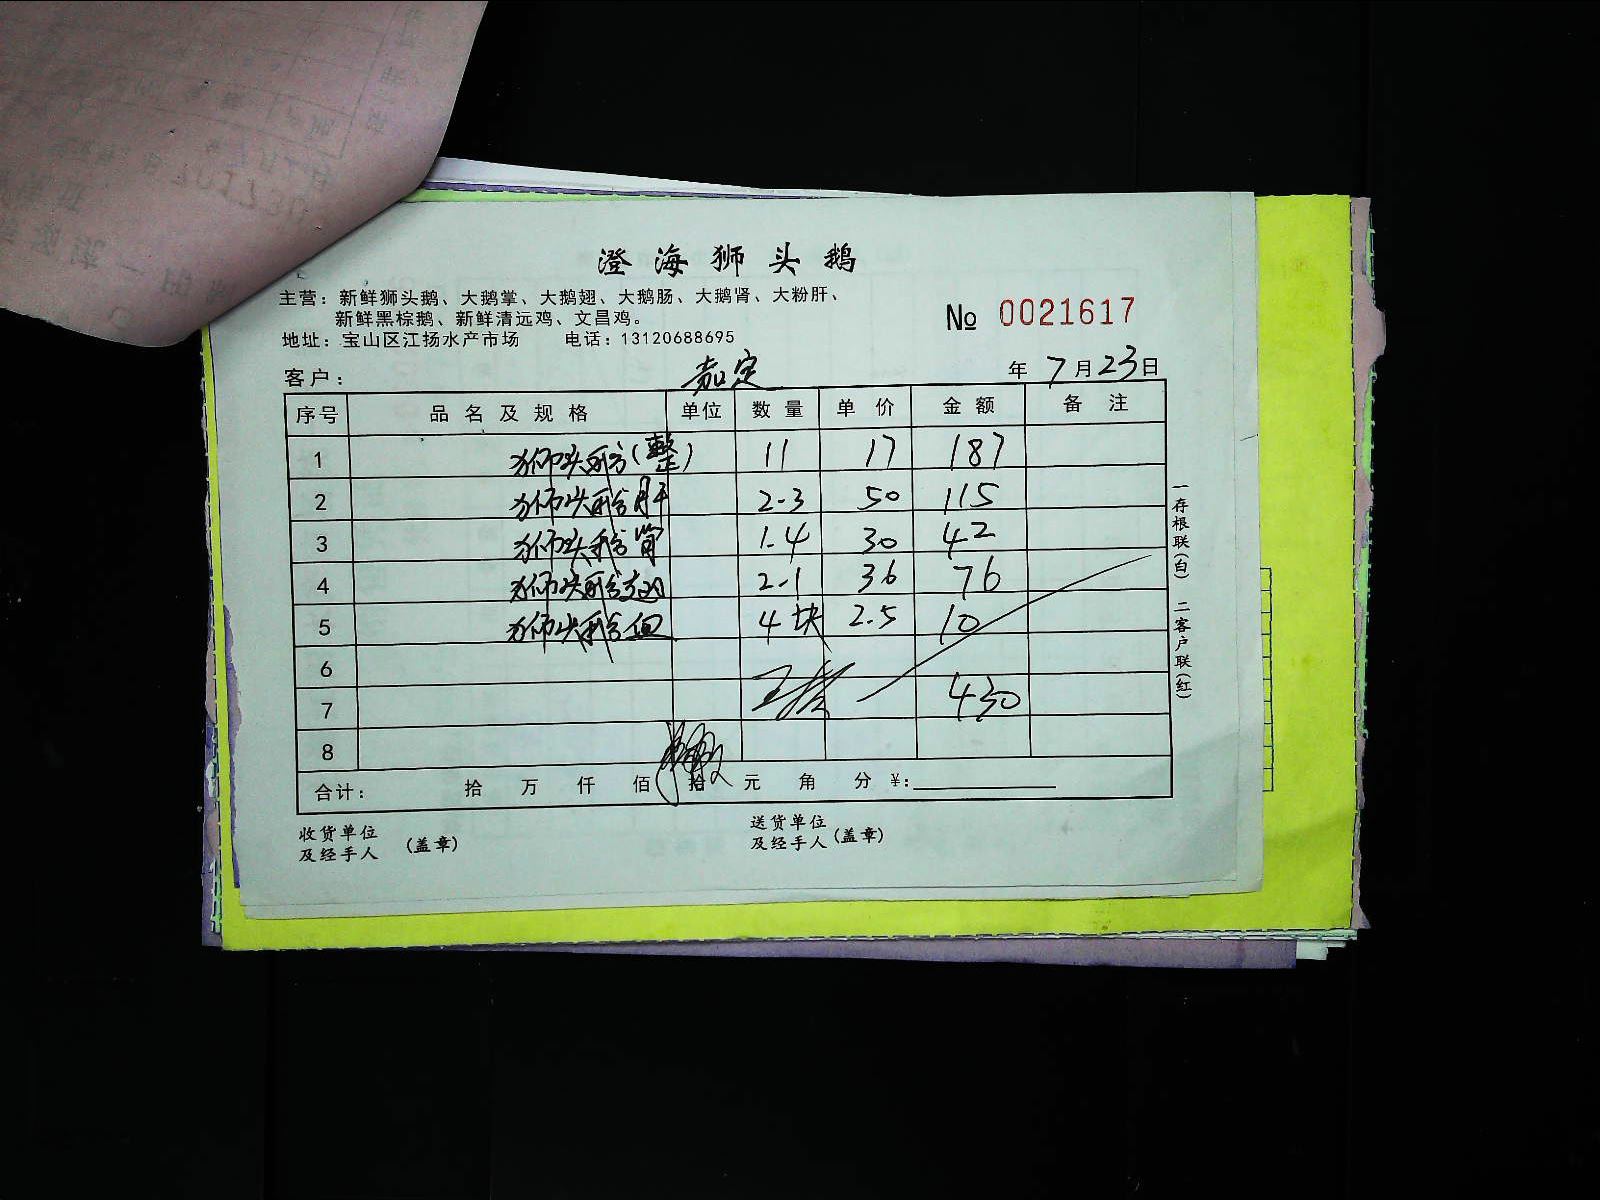 澄海狮头鹅
主营：新鲜狮头鹅、大鹅掌、大鹅翅、大鹅肠、大鹅肾、大粉肝、
新鲜黑棕鹅、新鲜清远鸡、文昌鸡。
№ 0021617
地址：宝山区江扬水产市场 电话：13120688695
客户： 嘉定 年 7 月 23 日
序号 品名及规格 单位 数量 单价 金额 备注
1 狮头鹅(整) 11 17 187
2 狮头鹅肝 2.3 50 115
3 狮头鹅肾 1.4 30 42
4 狮头鹅翅 2.1 36 76
5 狮头鹅血 4块 2.5 10
6
7 430
8
合计： 拾 万 仟 佰 拾 元 角 分 ¥：
一存根联(白) 二客户联(红)
收货单位
及经手人 (盖章)
送货单位
及经手人 (盖章)